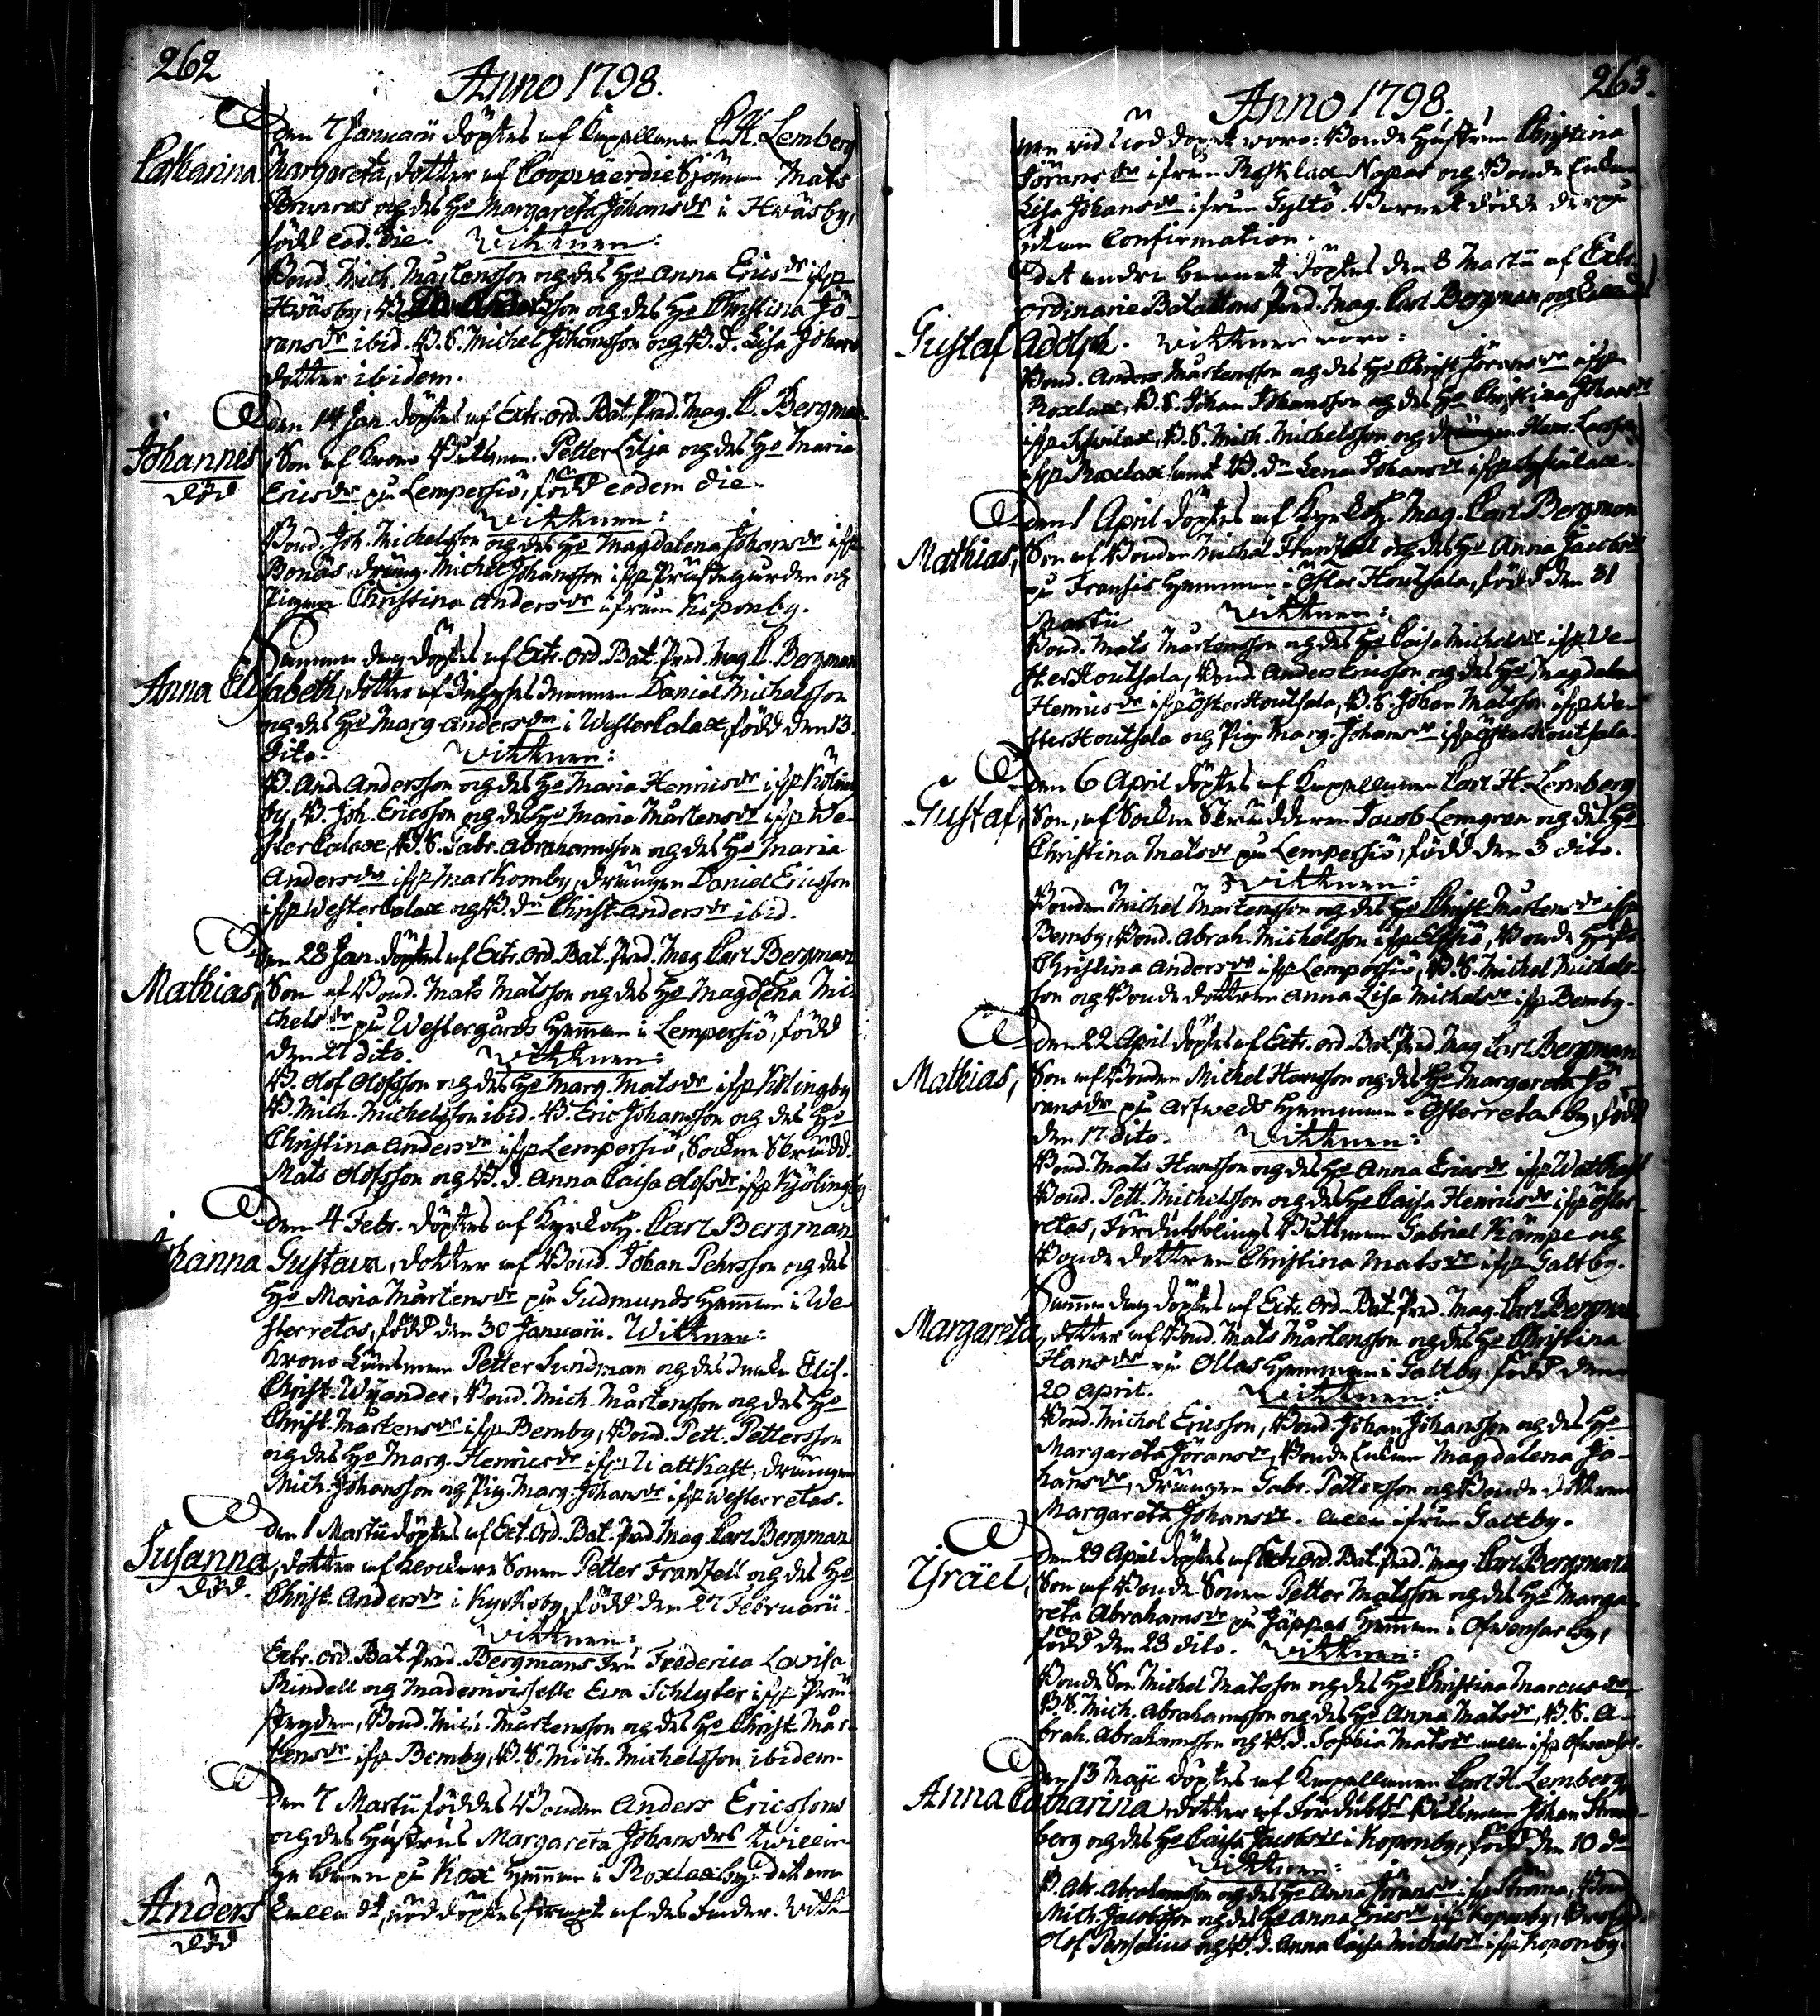 262
Anno 1798.
Den 7 Januarii döptes af Capellanen C. H. Lemberg
Catharina Margareta, dotter af Coopvaerdie Sjöman Mats
och des Ho Margareta Johansdr i Hwäsby,
född eod. die. Vittnen:
Bond. Mich. Mårtensson och des Ho Anna Ericsdr ifr
Hwäsby, B. son och des Ho Christina Jö-
ransdr ibid. B.S. Michel Johansson och B.d. Lisa Johans
dotter ibidem.
Den 14 Jan döptes af Extr. ord. Bat. Pred. Mag. C. Bergman
Johannes, Son af Krono Båtsman Petter Lilja och des Ho Maria
död
Ericsdr på Lempersiö, född eodem die.
Vittnen:
Bond. Joh. Michelsson och des Ho Magdalena Johansdr ifr
Bonäs, dräng. Michel Johansson ifr Prästegården och
Pigan Christina Andersdr ifrån Koponby.
Samma dag döptes af Extr. Ord. Bat. Pred. Mag. C. Bergman
Anna Elisabeth, dotter af Daniel Michelsson
och des Ho Marg. Andersdr i Westerkalax, född den 13
dito. Vittnen:
B. And. Andersson och des Ho Maria Henricsdr ifr Kölin
by, B. Joh. Ericsson och des Ho Maria Mårtensdr ifr We-
sterkalax, B.S. Gabr. Abrahamsson och des Ho Maria
Andersdr ifr Markomby, drängen Daniel Ericsson
ifr Westerkalax och B.dr Christ. Andersdr ibid.
Den 28 Jan. döptes af Extr. Ord. Bat. Pred. Mag Carl Bergman
Mathias, Son af Bond. Mats Matsson och des Ho Magdlena Mi-
chelsdr på Westergårds Hemman i Lempersiö, född
den 27 dito. Vittnen:
B. Olof Olofsson och des Ho Marg. Matsdr ifr Kölingby
B. Mich. Michelsson ibid. B. Eric Johansson och des Ho
Christina Andersdr ifr Lempersiö, Sockne Skrädd.
Mats Olofsson och B.d. Anna Caisa Olofsdr ifr Kjölingby
Den 4 Febr. döptes af Kyrkoh. Carl Bergman
Johanna Gustava, dotter af Bond. Johan Pehrsson och des
Ho Maria Mårtensdr på Gudmunds Hemman i We-
sterretas, född den 30 Januarii. Wittnen:
Krono Länsman Petter Sundman och des Elis.
Christ. Wijander, Bond. Mich. Mårtensson och des Ho
Christ. Mårtensdr ifr Bemby, Bond. Pett. Pettersson
och des Ho Marg. Henricsdr ifr Wattkast, drängen
Mich. Johansson och Pig. Marg. Johansdr ifr Westerretas.
Den 1 Martii döptes af Ext. Ord. Bat. Pred Mag Carl Bergman
Susanna, dotter af Klockare Sonen Petter Franzell och des Ho
död.
Christ. Andersdr i Kyrksby, född den 27 Februarii.
Vittnen:
Extr. ord. Bat. Pred. Bergmans Fru Fredrica Lovisa
Rindell och Mademoiselle Eva Schlyter ifr Prä-
stegården, Bond. Mich. Mårtensson och des Ho Christ. Mår-
tensdr ifr Bemby, B.S. Mich. Michelsson ibidem.
Den 7 Martii föddes Bonden Anders Ericssons
och des Hustrus Margareta Johansdrs twillin-
ge barn på Kox Hemman i Roxlaxby. Det ena
Anders kalladt, nöddöptes strax af des Fader. Vitt-
död
263.
Anno 1798.
nen vid nöddopet woro: Bonde Hustrun Christina
Jöransdr ifrån Rosklax Nopas och Bonde Enkan
Lisa Johansdr ifrån Gyltö. Barnet dödde derpå
utan Confirmation.
Det andra barnet döptes den 8 Martii af Extr.
ordinarie Bataillons Pred. Mag. Carl Bergman, och
Gustaf Adolph. Vittnen woro:
Bond. Anders Mårtensson och des Ho Christ. Jöransdr ifr
Roxlax, B.S. Johan Johansson och des Ho Christina Johansdr
ifr , B.S. Mich. Michelsson och drängen Hans Larsson
ifr Roxlax samt B.dr Lena Johansdr ifr
Den 1 April döptes af Kyrkoh. Mag. Carl Bergman
Mathias, Son af Bonden Michel Franzell och des Ho Anna Jacobsdr
på Fransis Hemman i Öster Houtsala, född den 31
Martii Vittnen:
Bond. Mats Mårtensson och des Ho Caisa Michelsdr ifr We-
ster Houtsala, Bond. Anders Ericsson och des Ho Magdalena
Henricsdr ifr Öster Houtsala, B.S. Johan Matsson ifr We-
ster Houtsala och Pig. Marg. Johansdr ifr Öster Houtsala.
Den 6 April döptes af Capellanen Carl H. Lemberg
Gustaf, Son, af Sockne Skräddaren Jacob Lemgren och des Ho
Christina Matsdr på Lempersiö, född den 3 dito.
Vittnen:
Bonden Michel Mårtensson och des Ho Christ. Mårtensdr ifr
Bemby, Bond. Abrah. Michelsson ifr , Bonde Hustr.
Christina Andersdr ifr Lempersiö, B.S. Michel Michels-
son och Bonde dottren Anna Lisa Michelsdr ifr Bemby.
Den 22 April döptes af Extr. ord. Bat. Pred. Mag Carl Bergman
Mathias, Son af Bonden Michel Hansson och des Ho Margareta Jö-
ransdr på Arfweds Hemman i Österretas by, född
den 17 dito. Vittnen:
Bond. Mats Hansson och des Ho Anna Ericsdr ifr Wattkast
Bond. Pett. Michelsson och des Ho Caisa Henricsdr ifr Öster-
retas, Fördubblings Båtsman Gabriel Kämpe och
Bonde dottren Christina Matsdr ifr Galtby.
Samma dag döptes af Extr. Ord. Bat. Pred. Mag. Carl Bergman
Margareta, dotter af Bond. Mats Mårtensson och des Ho Christina
Hansdr på Ollas Hemman i Galtby, född den
20 april. Vittnen:
Bond. Michel Ericsson, Bond. Johan Johansson och des Ho
Margareta Jöransdr, Bonde Enkan Magdalena Jo-
hansdr, drängen Gabr. Pettersson och Bonde dottren
Margareta Johansdr. alla ifrån Galtby.
Den 29 April döptes af Extr. ord. Bat. Pred. Mag. Carl Bergman
Israel, Son af Bonde Sonen Petter Matsson och des Ho Marga-
reta Abrahamsdr på Jäppas Hemman i Ofvensar by,
född den 23 dito. Vittnen:
Bonde Son Michel Matsson och des Ho Christina Marcusdr,
B.S. Mich. Abrahamsson och des Ho Anna Matsdr, B.S. A-
brah. Abrahamsson och B.d. Sophia Matsdr alla ifr Ofvensar.
Den 13 Maji döptes af Capellanen Carl H. Lemberg
Anna Catharina, dotter af Fördubbl. Båtsman Johan Strand-
berg och des Ho Caisa Jacobsdr i Koponby, född den 10 do
Vittnen:
B. Abr. Abrahamsson och des Ho Anna Jöransdr ifr Ströma, Bond.
Mich. Jacobsson och des Ho Anna Ericsdr ifr Koponby,
Olof och B.d. Anna Caisa Michelsdr ifr Koponby.